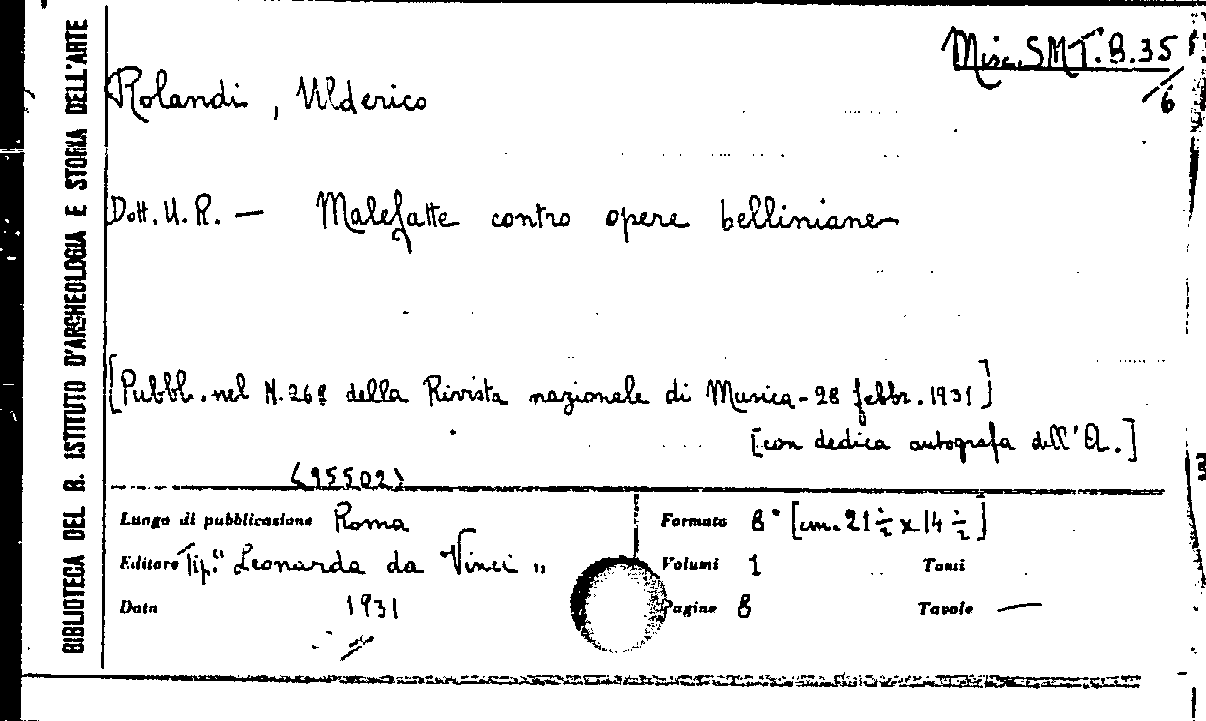 BIBLIOTECA DEL R. ISTITUTO D'ARCHEOLOGIA E STORIA DELL'ARTE
Misc. SMT. B. 35/6
Rolandi, Ulderico
Dott. U. R. — Malefatte contro opere belliniane
[Pubbl. nel N. 268 della Rivista nazionale di Musica - 28 febbr. 1931]
[con dedica autografa dell'A.]
(95502)
Luogo di pubblicazione Roma
Formato 8° [cm. 21 ½ x 14 ½]
Editore Tip. "Leonardo da Vinci"
Volumi 1 Tomi
Data 1931
Pagine 8 Tavole —